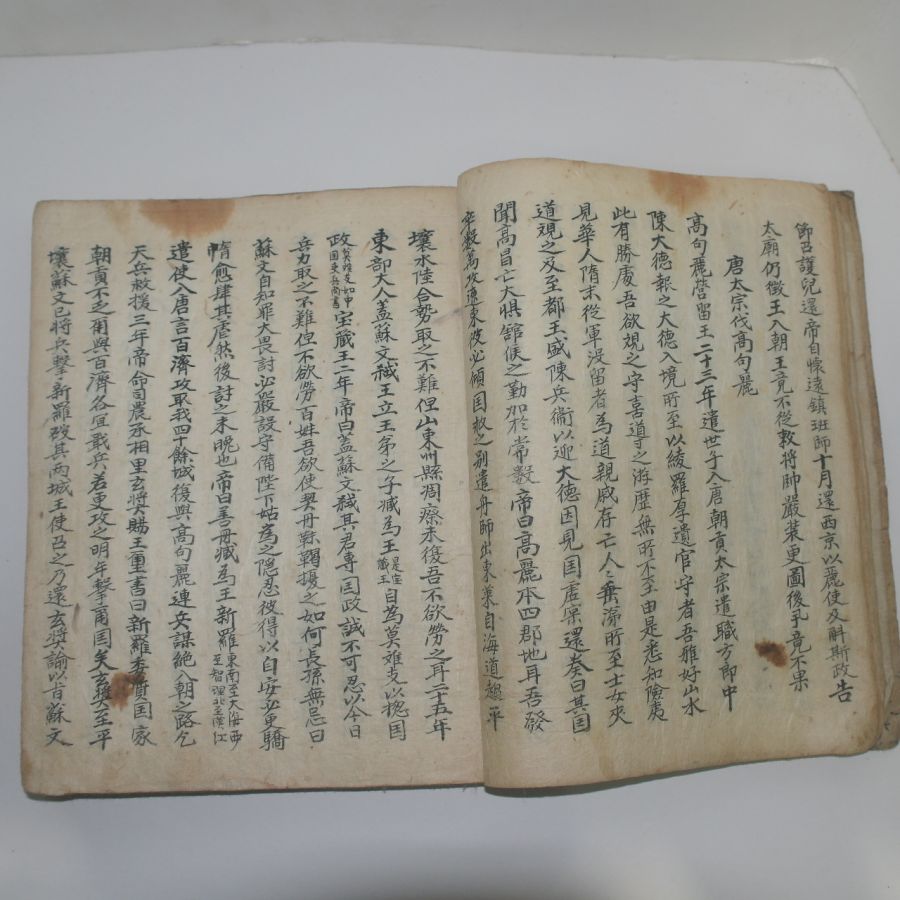 節召護兒還帝自懷遠鎮班師十月還西京以麗使及斛斯政告
太廟仍徵王入朝王竟不從敕將帥嚴装更圖後擧竟不果
唐太宗伐高句麗
高句麗營留王二十三年遣世子入唐朝貢太宗遣職方郎中
陳大德報之大德入境所至以綾羅厚遺官守者吾雅好山水
此有勝處吾欲視之守喜導之游歷無所不至由是悉知險夷
見華人隋末從軍没留者為道親戚存亡人〻垂涕所至士女夾
道視之及至都王盛陳兵衛以迎大德因見国虗宲還奏曰其国
聞高昌亡大惧舘候之勤加於常數帝曰高麗本四郡地耳吾發
卒數萬攻遼東彼必傾国救之别遣舟師出東萊自海道趨平
壤水陸合勢取之不難但山東州縣凋瘵未復吾不欲勞之耳二十五年
東部大人盖蘇文弒王立王弟之子臧為王是宝臧王自為莫難支以揔国
政莫難支如中国吏兵尚書宝臧王二年帝曰盖蘇文弒其君専国政誠不可忍以今日
兵力取之不難但不欲勞百姓吾欲使契丹靺鞨擾之如何長孫無忌曰
蘇文自知罪大畏討必嚴設守備陛下姑為之隠忍彼得以自安必更驕
惰愈肆其虐然後討之未晩也帝曰善冊臧為王新羅東南至大海西至智理北至漢江
遣使入唐言百濟攻取我四十餘城復與高句麗連文謀絶入朝之路乞
天兵救援三年帝命司農丞相里玄奬賜王璽書曰新羅委質国家
朝貢不乏爾與百濟各宜戢兵若更攻之明年擊爾国矣玄奬至平
壤蘇文已將兵擊新羅破其两城王使召之乃還玄奬諭以旨蘇文